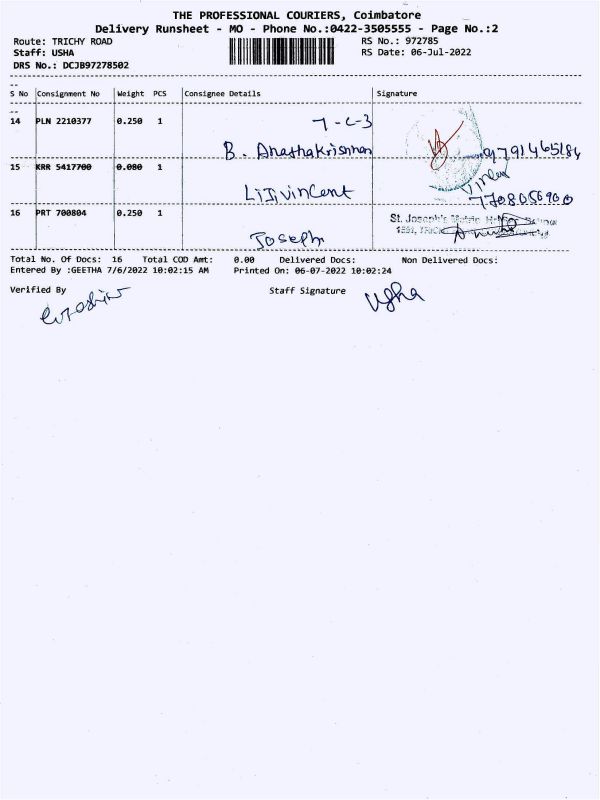 THE PROFESSIONAL COURIERS, Coimbatore
Delivery Runsheet - MO - Phone No.:0422-3505555 - Page No.:2
Route: TRICHY ROAD RS No.: 972785
Staff: USHA RS Date: 06-Jul-2022
DRS No.: DCJB97278502
S No Consignment No Weight PCS Consignee Details Signature
14 PLN 2210377 0.250 1 7-C-3
B. Anathakrishnan 9791465184
15 KRR 5417700 0.080 1
Lijivincent 7708056900
16 PRT 700804 0.250 1 St. Joseph's
Joseph
Total No. Of Docs: 16 Total COD Amt: 0.00 Delivered Docs: Non Delivered Docs:
Entered By :GEETHA 7/6/2022 10:02:15 AM Printed On: 06-07-2022 10:02:24
Verified By Staff Signature Usha